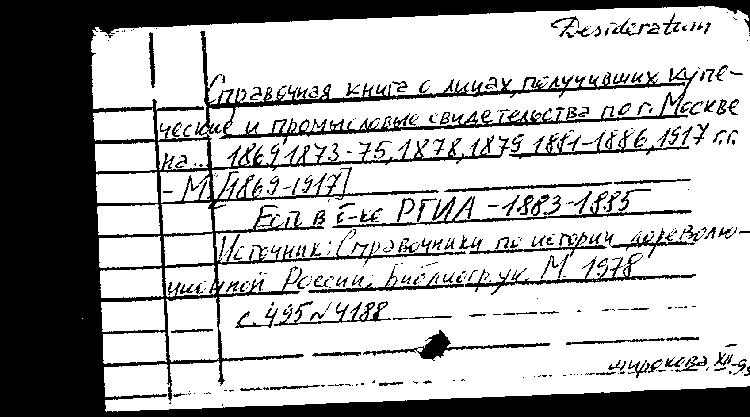 Desideratum
Справочная книга о лицах, получивших купе-
ческие и промысловые свидетельства по г. Москве
на... 1869, 1873-75, 1878, 1879, 1881-1886, 1917 г.г.
- М. [1869-1917]
Есть в б-ке РГИА - 1883-1885
Источник: Справочники по истории дореволю-
ционной России. Библиогр. ук. М. 1978
с. 495 № 4188
XII-93